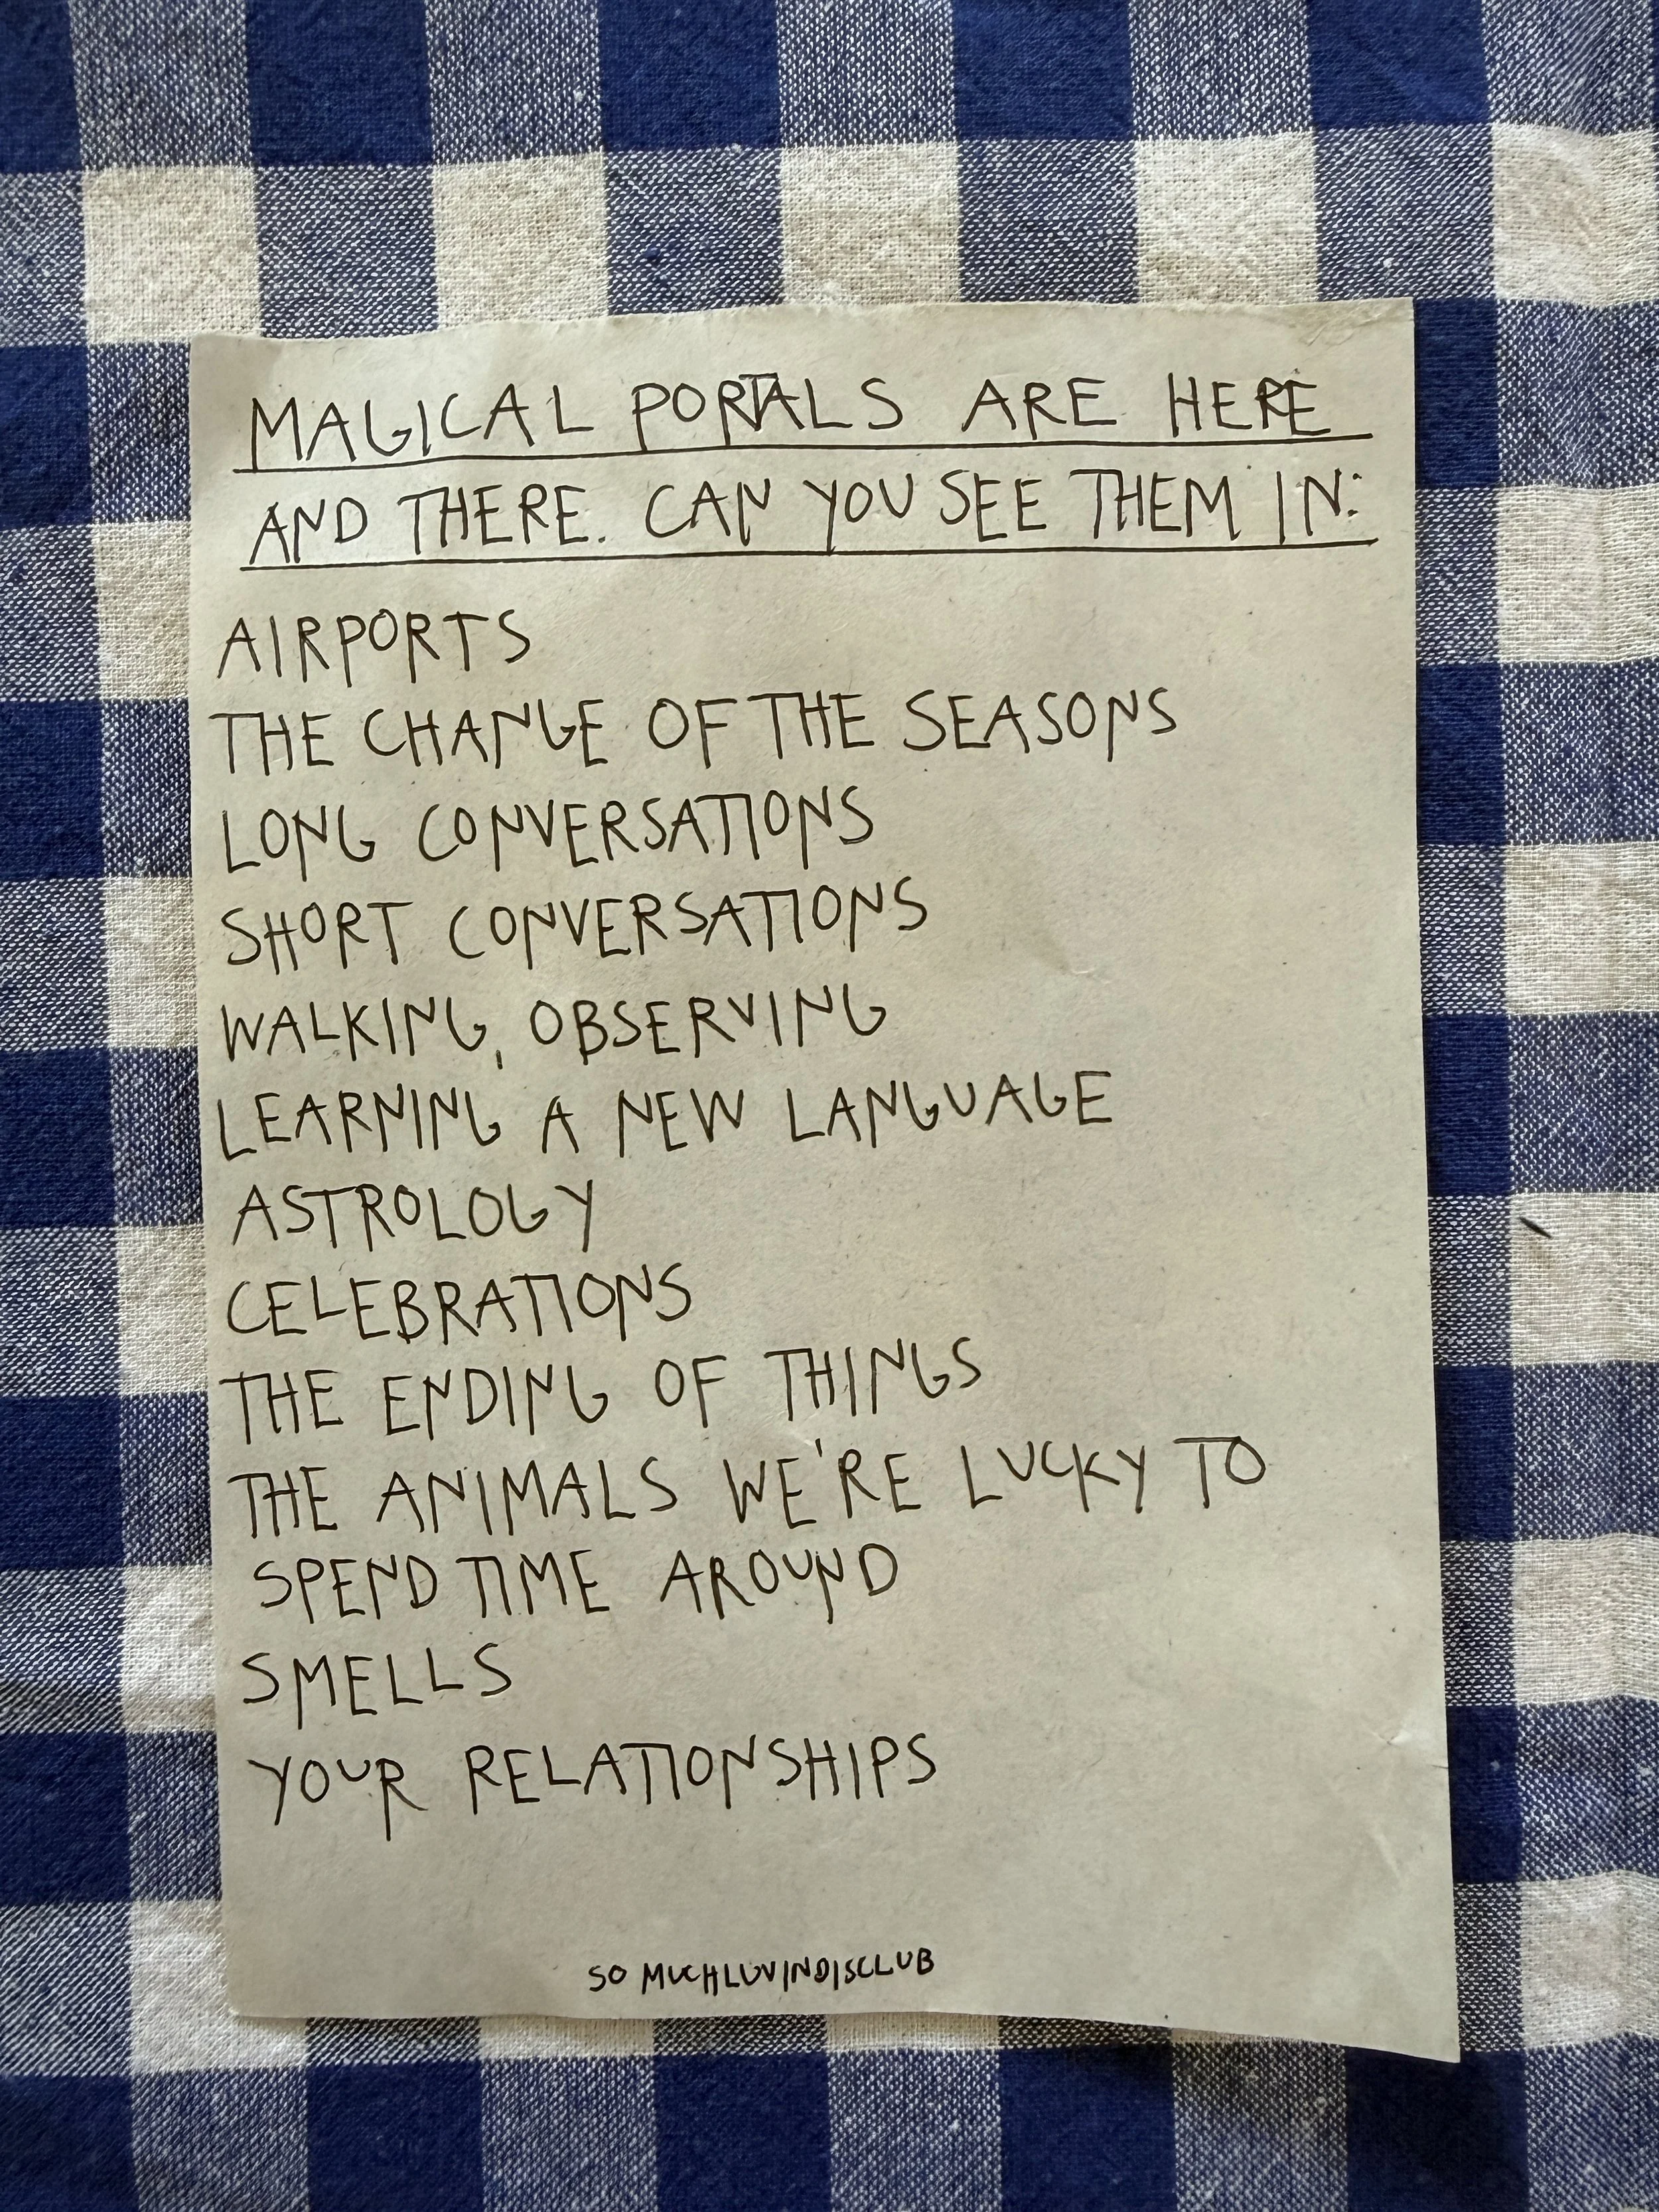 MAGICAL PORTALS ARE HERE
AND THERE. CAN YOU SEE THEM IN:
AIRPORTS
THE CHANGE OF THE SEASONS
LONG CONVERSATIONS
SHORT CONVERSATIONS
WALKING, OBSERVING
LEARNING A NEW LANGUAGE
ASTROLOGY
CELEBRATIONS
THE ENDING OF THINGS
THE ANIMALS WE'RE LUCKY TO
SPEND TIME AROUND
SMELLS
YOUR RELATIONSHIPS
SO MUCHLUVINDISCLUB